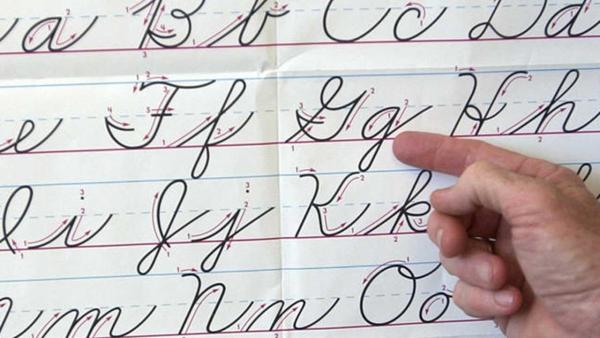 a B b C c D d
e F f G g H h
I i J j K k
m N n O o